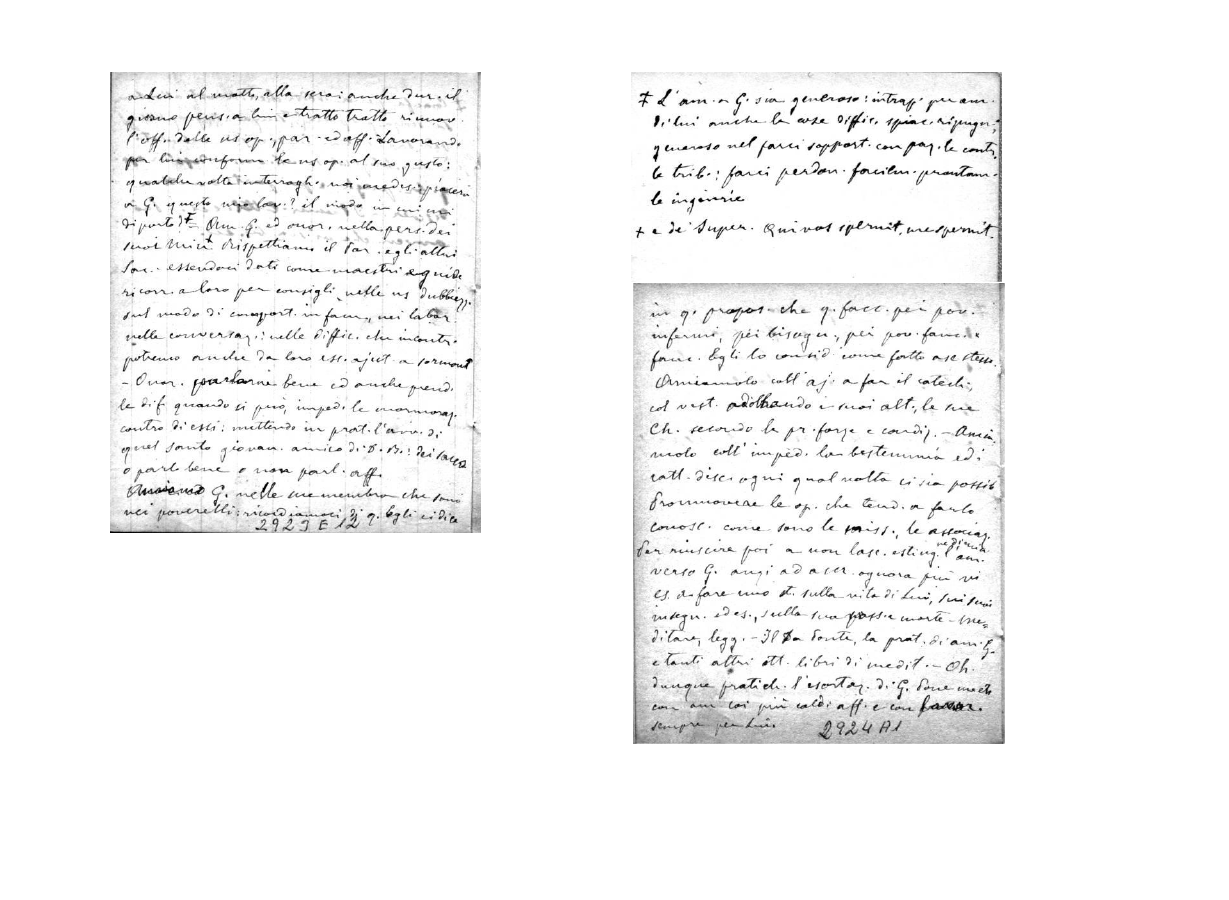 a Lui al matt., alla sera: anche dur. il
giorno pens. a lui e tratto tratto rinnov.
l'off. delle ns op., par. ed aff. Lavorando
per lui conform. le ns op. al suo gusto:
qualche volta interrogh. noi medes.: piacerà
a G. questo mio lav.? il modo in cui mi
diporto? ‡ Am. G. ed onor. nella pers. dei
suoi Min. Rispettiamo il Par. e gli altri
Sac. essendoci dati come maestri e guide
ricorr. a loro per consigli nelle ns dubbiezz.
sul modo di comport. in fam., nei labor.
nelle conversaz.: nelle diffic. che incontr.
potremo anche da loro ess. ajut. a sormont.
– Onor. parlarne bene ed anche prend.
le dif. quando si può, imped. le mormoraz.
contro di essi: mettendo in prat. l'avv. di
quel santo giovan. amico di D. B.: dei sacer.
o parla bene o non parl. aff.
Amiamo G. nelle sue membra che sono
nei poverelli: ricordiamoci di q. Egli ci dice
2923 E 12
‡ L'am. a G. sia generoso: intrap. per am.
di lui anche le cose diffic. spiac. ripugn.;
generoso nel farci support. con paz. le contr.
le trib.: farci perdon. facilm. prontam.
le ingiurie
+ e dei Super. Qui vos spernit, me spernit.
in q. propos. che q. facc. pei pov.
infermi, pei bisogn., pei pov. fanc. e
fanc. Egli lo consid. come fatto a se stesso.
Amiamolo coll'aj. a far il catech.,
col vest. addobbando i suoi alt., le sue
Ch. secondo le pr. forze e condiz. – Amia-
molo coll'imped. la bestemmia ed i
catt. disc. ogni qual volta ci sia possib.
Promuovere le op. che tend. a farlo
conosc. come sono le miss., le associaz.
Per riuscire poi a non lasc. esting. l'am.
verso G. anzi ad accr. ognora più vi
es. a fare uno st. sulla vita di Lui, sui suoi
insegn. ed es., sulla sua pass. e morte – me-
ditare, legg. – Il Da Ponte, la prat. di am. G.
e tanti altri ott. libri di medit. – Oh.
dunque pratich. l'esortaz. di G.
con am coi più caldi aff. e con
sempre per Lui.
2924 A1